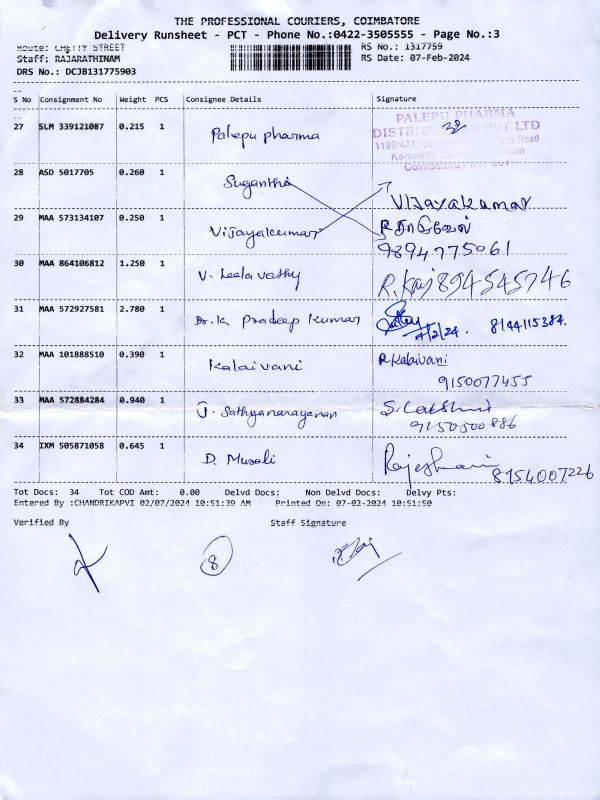 THE PROFESSIONAL COURIERS, COIMBATORE
Delivery Runsheet - PCT - Phone No.:0422-3505555 - Page No.:3
Route: CHETTY STREET
RS No.: 1317759
Staff: RAJARATHINAM
RS Date: 07-Feb-2024
DRS No.: DCJB131775903
S No Consignment No Weight PCS Consignee Details Signature
27 SLM 339121087 0.215 1 Palepu pharma
PALEPU PHARMA
DISTRIBUTORS PVT LTD
28 ASD 5017705 0.260 1 Sugantha
Vijayakumar
29 MAA 573134107 0.250 1 Vijayakumar
9894775061
30 MAA 864106812 1.250 1 V. Leela vathy
R. Raj 894545746
31 MAA 572927581 2.780 1 Dr. K. Pradeep Kumar
7/2/24. 8144115384.
32 MAA 101888510 0.390 1 Kalaivani R Kalaivani
9150077455
33 MAA 572884284 0.940 1 J. Sathyanarayanan S. Lakshmi
9150500886
34 IXM 505871058 0.645 1 D. Murali Rajeshwari 8754007226
Tot Docs: 34 Tot COD Amt: 0.00 Delvd Docs: Non Delvd Docs: Delvy Pts:
Entered By :CHANDRIKAPVI 02/07/2024 10:51:39 AM Printed On: 07-02-2024 10:51:50
Verified By Staff Signature
8